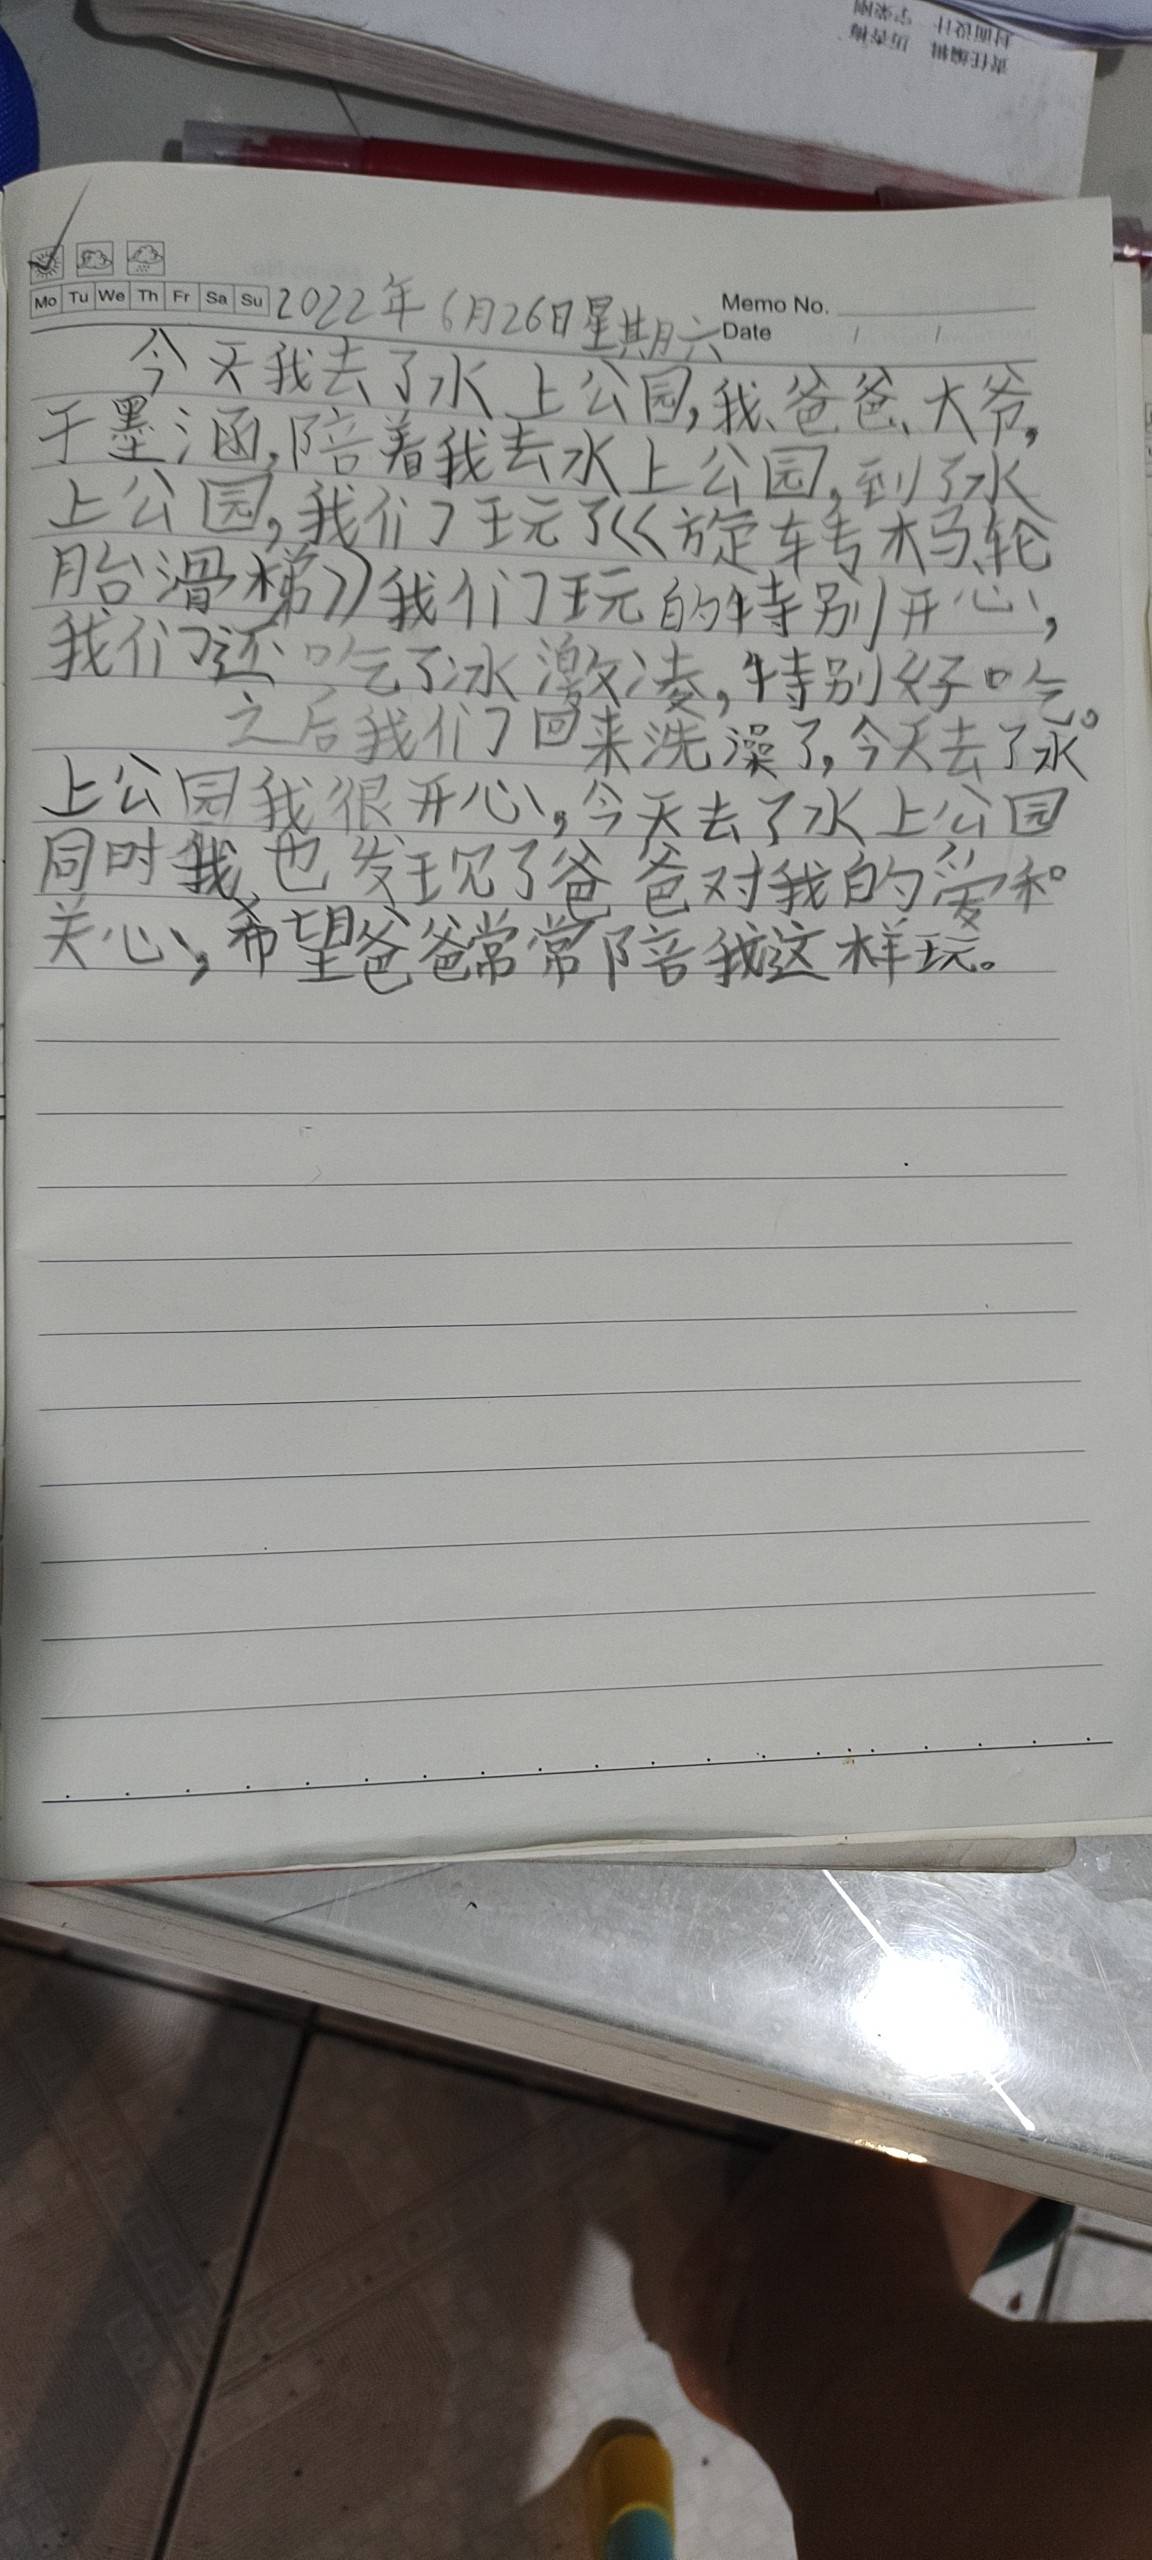 责任编辑 
封面设计
Mo Tu We Th Fr Sa Su 2022年6月26日星期六
Memo No.
Date / /
今天我去了水上公园,我、爸爸、大爷,
于墨涵,陪着我去水上公园,到了水
上公园,我们玩了《旋转木马、轮
胎滑梯》我们玩的特别开心,
我们还吃了冰激凌,特别好吃。
之后我们回来洗澡了,今天去了水
上公园我很开心,今天去了水上公园
同时我也发现了爸爸对我的爱和
关心,希望爸爸常常陪我这样玩。